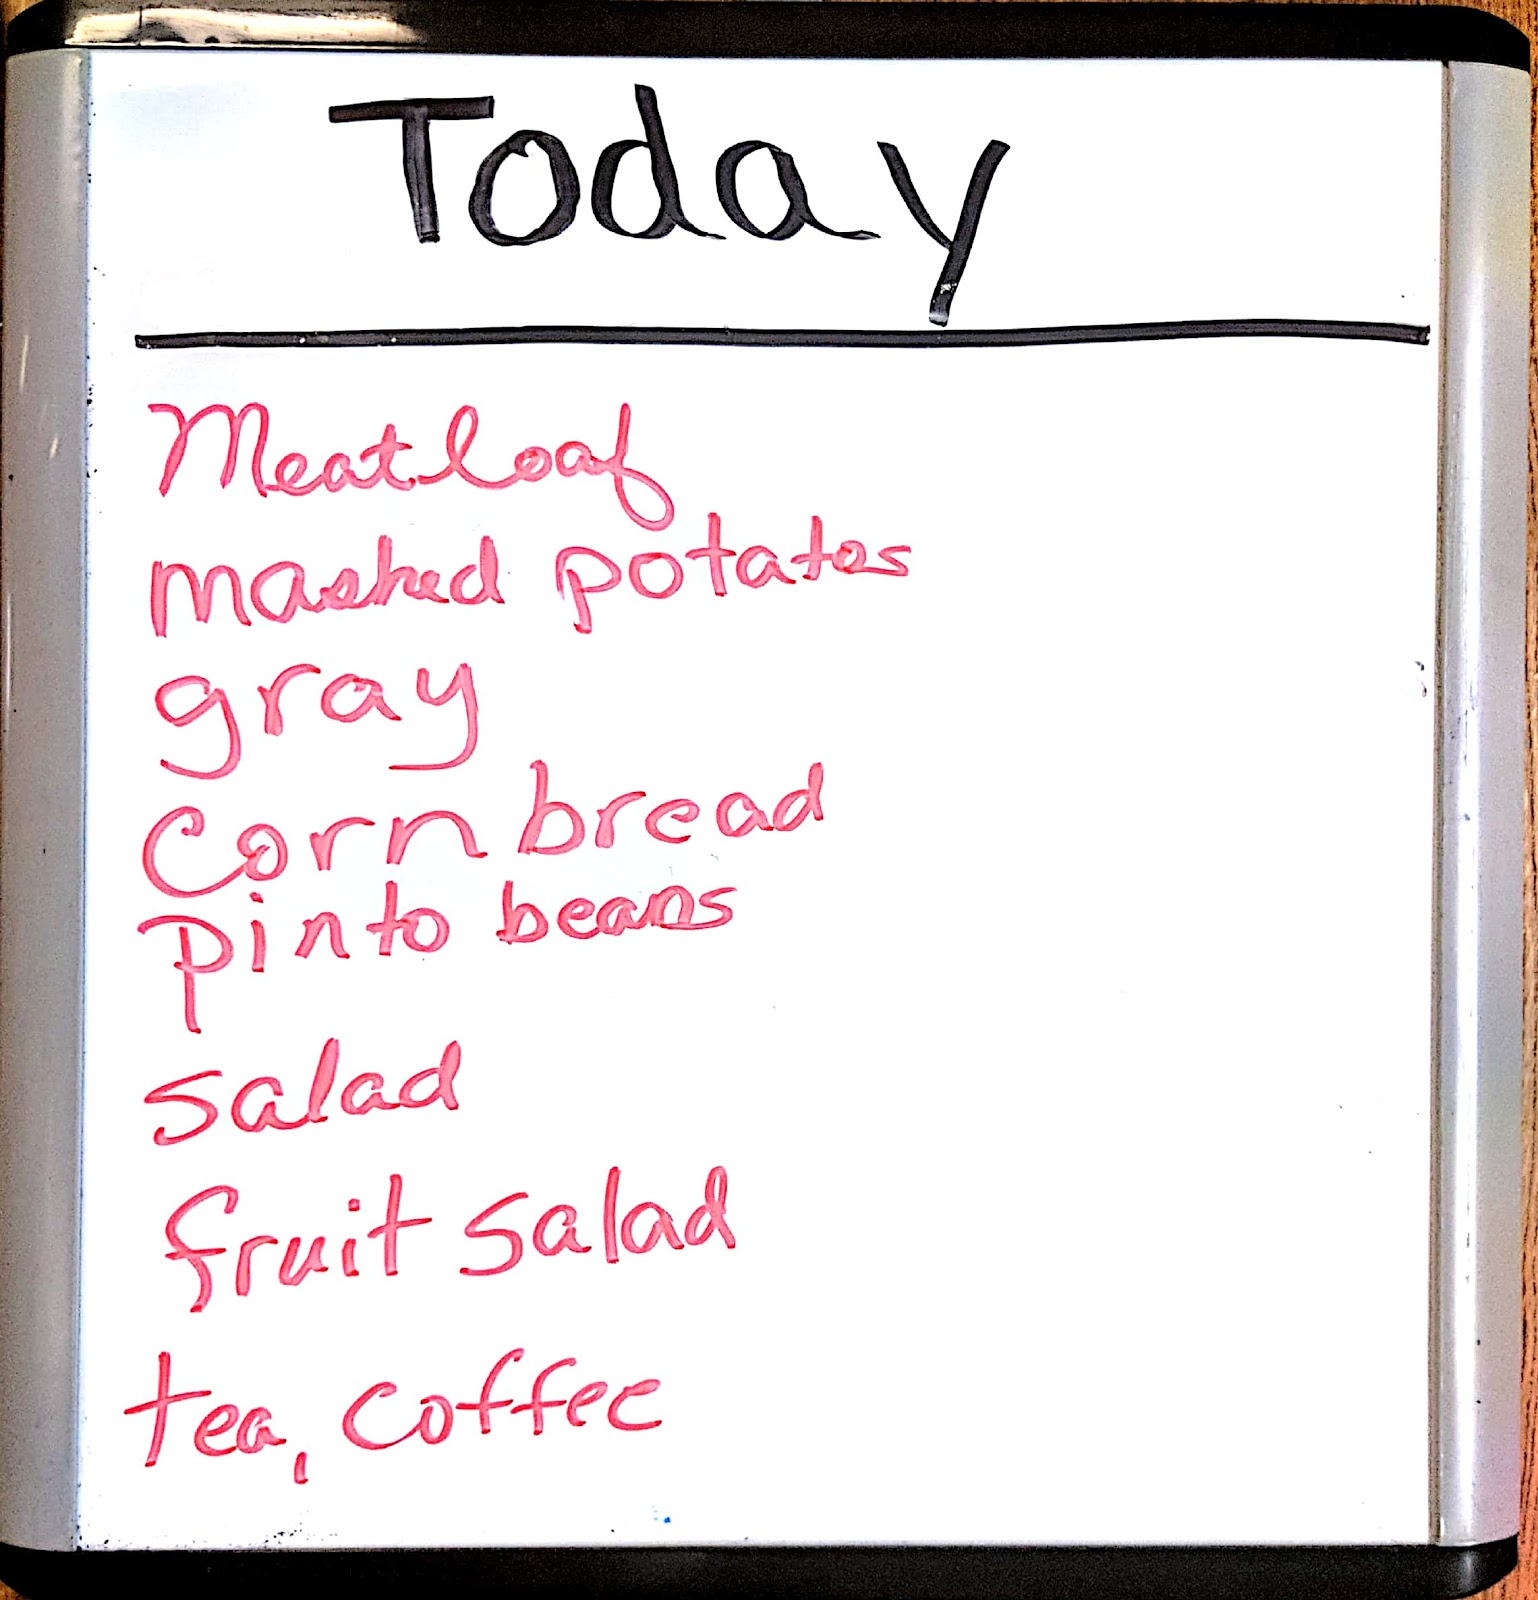 Today
Meatloaf
mashed potatos
gray
Corn bread
pinto beans
salad
fruit salad
tea, coffee